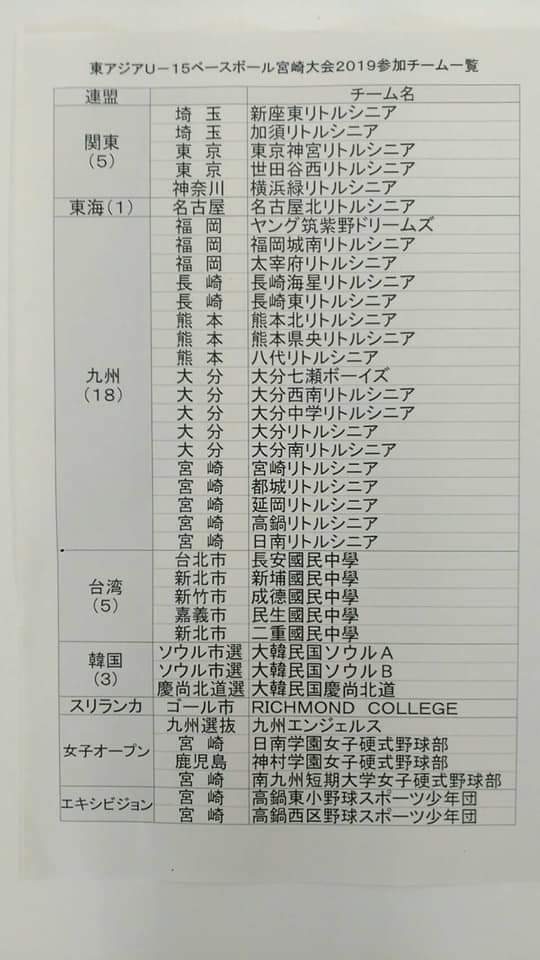 東アジアU－15ベースボール宮崎大会2019参加チーム一覧
連盟 チーム名
関東(5) 埼玉 新座東リトルシニア
埼玉 加須リトルシニア
東京 東京神宮リトルシニア
東京 世田谷西リトルシニア
神奈川 横浜緑リトルシニア
東海(1) 名古屋 名古屋北リトルシニア
九州(18) 福岡 ヤング筑紫野ドリームズ
福岡 福岡城南リトルシニア
福岡 太宰府リトルシニア
長崎 長崎海星リトルシニア
長崎 長崎東リトルシニア
熊本 熊本北リトルシニア
熊本 熊本県央リトルシニア
熊本 八代リトルシニア
大分 大分七瀬ボーイズ
大分 大分西南リトルシニア
大分 大分中学リトルシニア
大分 大分リトルシニア
大分 大分南リトルシニア
宮崎 宮崎リトルシニア
宮崎 都城リトルシニア
宮崎 延岡リトルシニア
宮崎 高鍋リトルシニア
宮崎 日南リトルシニア
台湾(5) 台北市 長安國民中學
新北市 新埔國民中學
新竹市 成德國民中學
嘉義市 民生國民中學
新北市 二重國民中學
韓国(3) ソウル市選 大韓民国ソウルA
ソウル市選 大韓民国ソウルB
慶尚北道選 大韓民国慶尚北道
スリランカ ゴール市 RICHMOND COLLEGE
女子オープン 九州選抜 九州エンジェルス
宮崎 日南学園女子硬式野球部
鹿児島 神村学園女子硬式野球部
宮崎 南九州短期大学女子硬式野球部
エキシビジョン 宮崎 高鍋東小野球スポーツ少年団
宮崎 高鍋西区野球スポーツ少年団